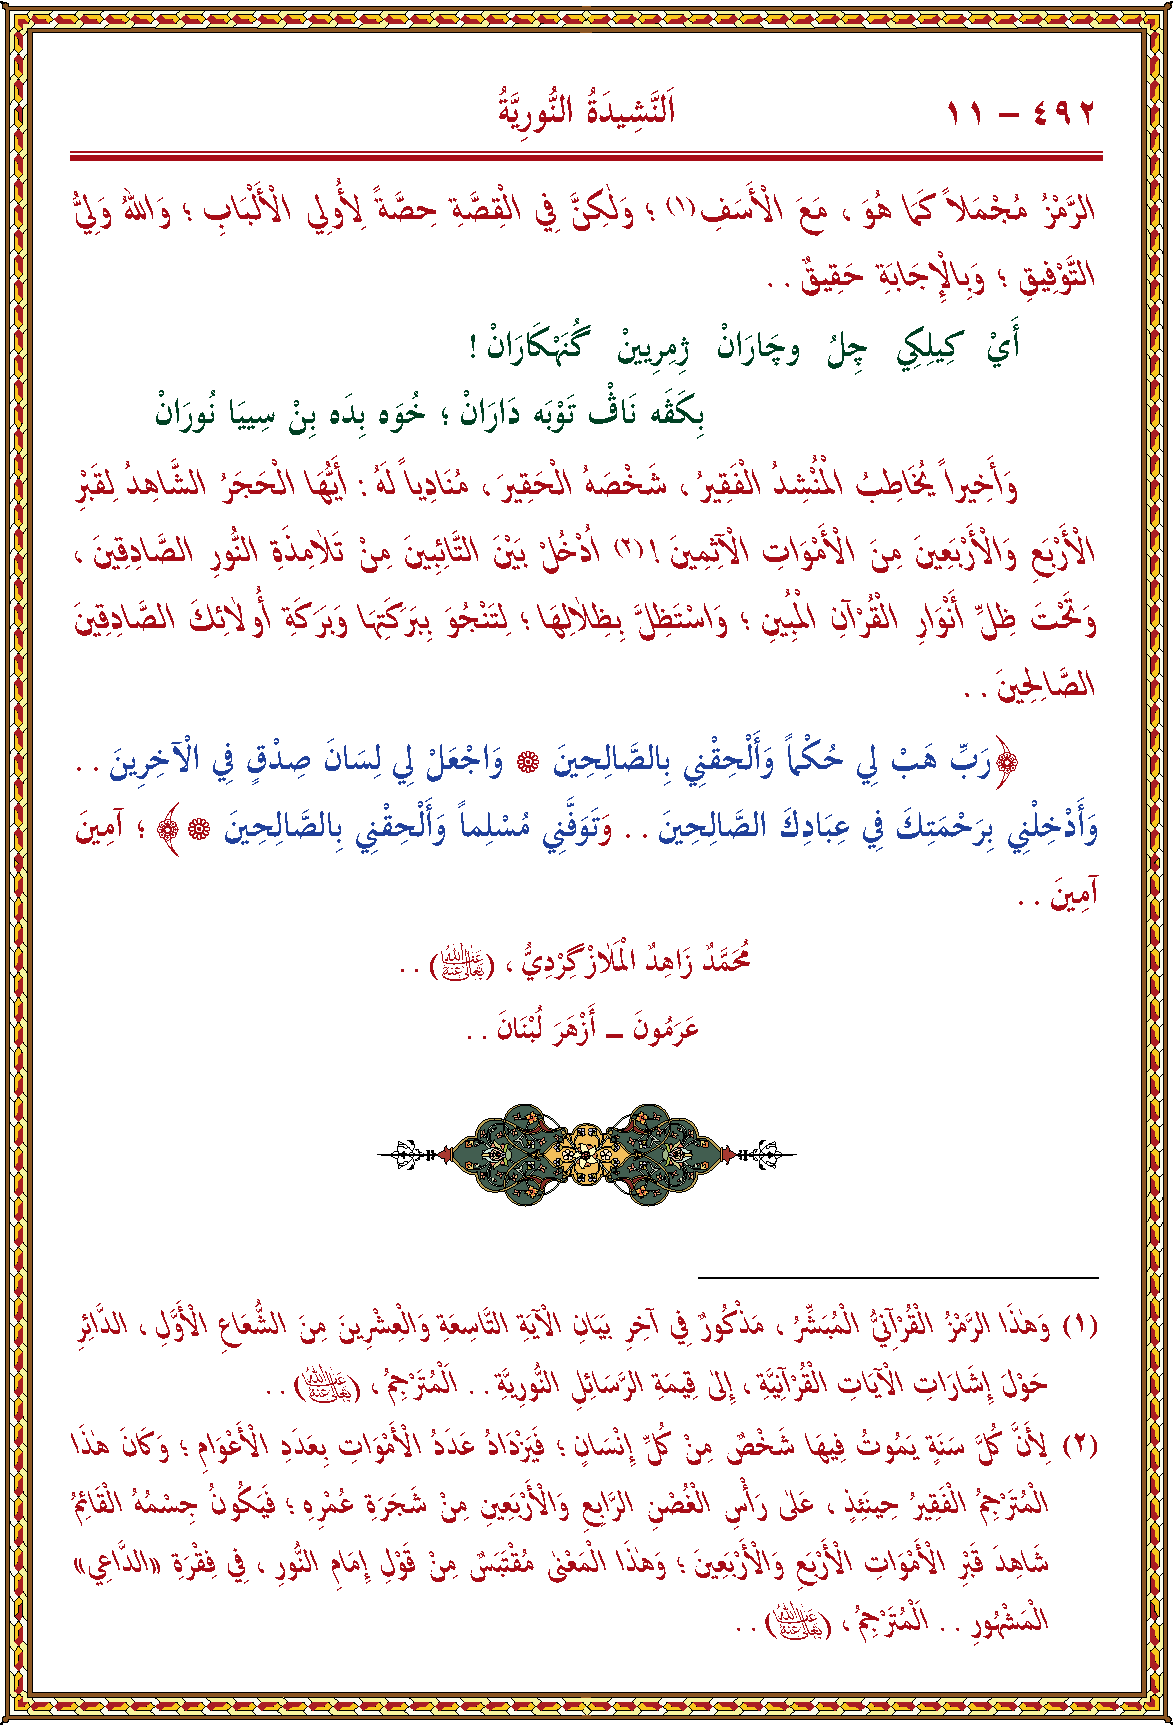 ٤٩٢ – ١١
اَلنَّشِيدَةُ النُّورِيَّةُ
الرَّمْزُ مُجْمَلاً كَمَا هُوَ ، مَعَ الْأَسَفِ(١) ؛ وَلٰكِنَّ فِي الْقِصَّةِ حِصَّةً لِأُولِي الْأَلْبَابِ ؛ وَاللهُ وَلِيُّ
التَّوْفِيقِ ؛ وَبِالْإِجَابَةِ حَقِيقٌ . .
أَيْ كِيلِكِي چِلُ وچَارَانْ ژِمِرِيينْ گُنَهْكَارَانْ !
بِكَڤَه نَاڤْ تَوْبَه دَارَانْ ؛ خُوَه بِدَه بِنْ سِييَا نُورَانْ
وَأَخِيراً يُخَاطِبُ الْمُنْشِدُ الْفَقِيرُ ، شَخْصَهُ الْحَقِيرَ ، مُنَادِياً لَهُ : أَيُّهَا الْحَجَرُ الشَّاهِدُ لِقَبْرِ
الْأَرْبَعِ وَالْأَرْبَعِينَ مِنَ الْأَمْوَاتِ الْآثِمِينَ !(٢) اُدْخُلْ بَيْنَ التَّائِبِينَ مِنْ تَلَامِذَةِ النُّورِ الصَّادِقِينَ ،
وَتَحْتَ ظِلِّ أَنْوَارِ الْقُرْآنِ الْمُبِينِ ؛ وَاسْتَظِلَّ بِظِلَالِهَا ؛ لِتَنْجُوَ بِبَرَكَتِهَا وَبَرَكَةِ أُولَائِكَ الصَّادِقِينَ
الصَّالِحِينَ . .
﴿رَبِّ هَبْ لِي حُكْماً وَأَلْحِقْنِي بِالصَّالِحِينَ ۞ وَاجْعَلْ لِي لِسَانَ صِدْقٍ فِي الْآخِرِينَ . .
وَأَدْخِلْنِي بِرَحْمَتِكَ فِي عِبَادِكَ الصَّالِحِينَ . . وَتَوَفَّنِي مُسْلِماً وَأَلْحِقْنِي بِالصَّالِحِينَ ۞﴾ ؛ آمِينَ
آمِينَ . .
مُحَمَّدٌ زَاهِدٌ الْمَلَازْگِرْدِيُّ ، (عَفَا اللهُ تَعَالَى عَنْهُ) . .
عَرَمُونَ – أَزْهَرَ لُبْنَانَ . .
(١) وَهٰذَا الرَّمْزُ الْقُرْآنِيُّ الْمُبَشِّرُ ، مَذْكُورٌ فِي آخِرِ بَيَانِ الْآيَةِ التَّاسِعَةِ وَالْعِشْرِينَ مِنَ الشُّعَاعِ الْأَوَّلِ ، الدَّائِرِ
حَوْلَ إِشَارَاتِ الْآيَاتِ الْقُرْآنِيَّةِ ، إِلَى قِيمَةِ الرَّسَائِلِ النُّورِيَّةِ . . الْمُتَرْجِمُ ، (عَفَا اللهُ تَعَالَى عَنْهُ) . .
(٢) لِأَنَّ كُلَّ سَنَةٍ يَمُوتُ فِيهَا شَخْصٌ مِنْ كُلِّ إِنْسَانٍ ؛ فَيَزْدَادُ عَدَدُ الْأَمْوَاتِ بِعَدَدِ الْأَعْوَامِ ؛ وَكَانَ هٰذَا
الْمُتَرْجِمُ الْفَقِيرُ حِينَئِذٍ ، عَلَى رَأْسِ الْغُصْنِ الرَّابِعِ وَالْأَرْبَعِينِ مِنْ شَجَرَةِ عُمْرِهِ ؛ فَيَكُونُ جِسْمُهُ الْقَائِمُ
شَاهِدَ قَبْرِ الْأَمْوَاتِ الْأَرْبَعِ وَالْأَرْبَعِينَ ؛ وَهٰذَا الْمَعْنَى مُقْتَبَسٌ مِنْ قَوْلِ إِمَامِ النُّورِ ، فِي فِقْرَةِ «الدَّاعِي»
الْمَشْهُورِ . . اَلْمُتَرْجِمُ ، (عَفَا اللهُ تَعَالَى عَنْهُ) . .